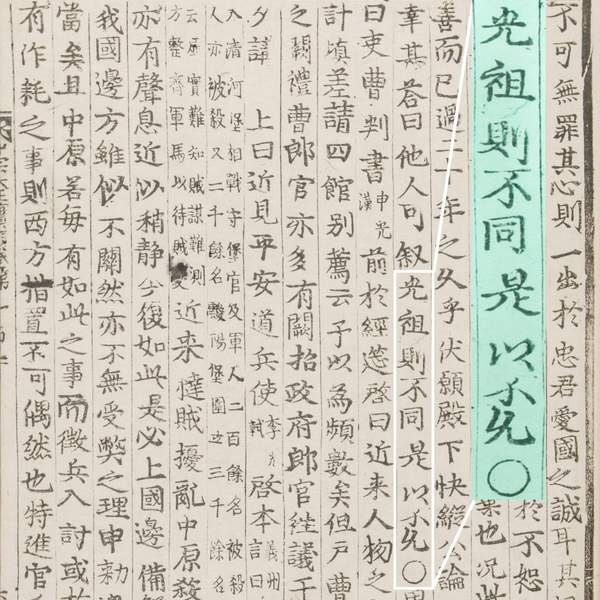 不可無罪其心則一出於忠君愛國之誠耳其
於不恕
光祖則不同是以不允○
也況此
善而已過二十年之久乎伏願殿下快從公論
辜其答曰他人可叙光祖則不同是以不允○
曰吏曹判書申光漢前於經筵啓曰近来人物之
計塡差請四館别薦云予以爲頻數矣但戸曹
之闕禮曹郎官亦多有闕招政府郎官經議于
夕講上曰近見平安道兵使李啓本義州言曰
入清河堡相戰守堡官及軍人二百餘名被殺
人亦被殺又二千餘名靉陽堡圍立三千餘名
云厥實難知賊謀難測
方整齊軍馬以待賊變近来㺚賊擾亂中原殺
亦有聲息近似稍静今復如此是必上國邊備
我國邊方雖似不關然亦不無受弊之理申勑
當矣且中原若每有如此之事而徵兵入討或
有作耗之事則西方措置不可偶然也特進官